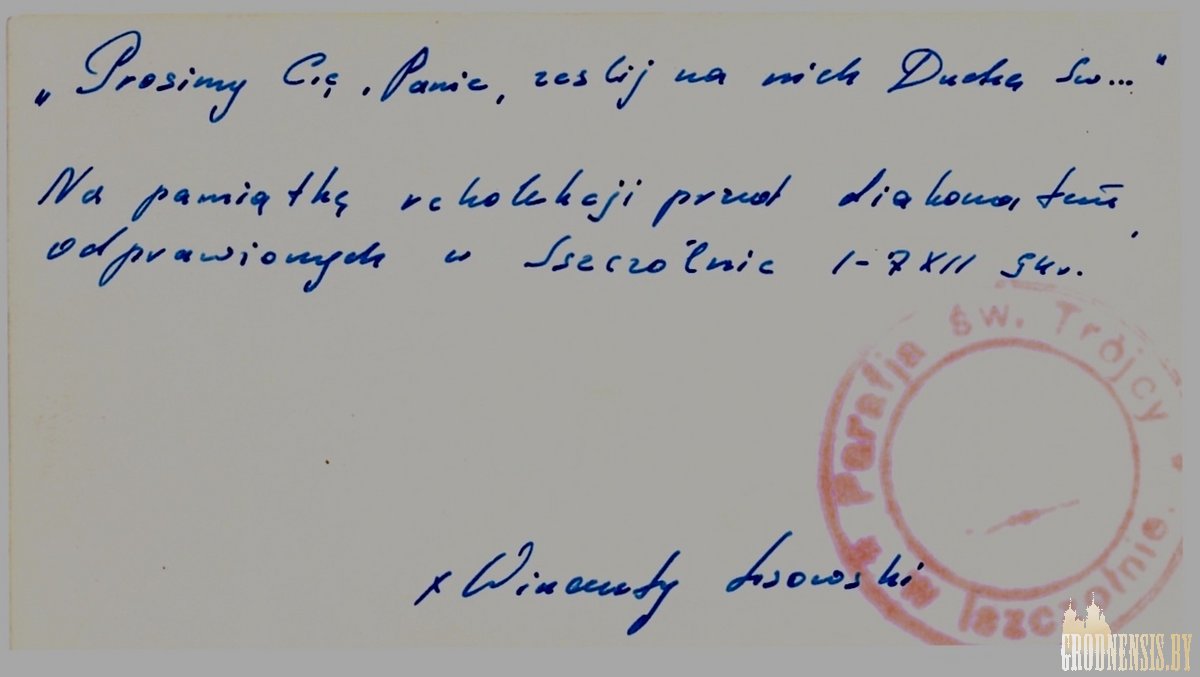 „Prosimy Cię, Panie, ześlij na nich Ducha Św..."
Na pamiątkę rekolekcji przed diakonatem
odprawionych w Iszczólnie 1-7 XII 94r.
x Wincenty Lisowski
Parafja św. Trójcy
w Iszczolnie.
GRODNENSIS.BY